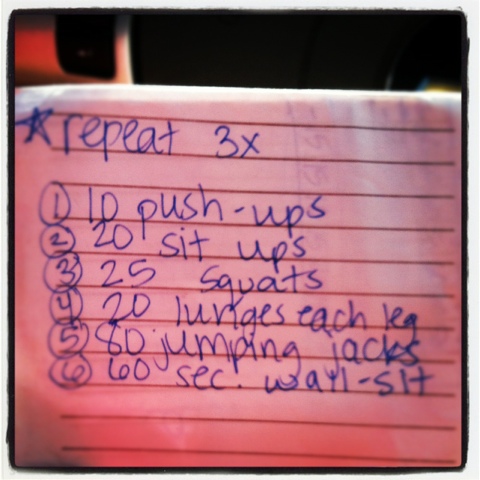 ★repeat 3x
① 10 push-ups
② 20 sit ups
③ 25 squats
④ 20 lunges each leg
⑤ 80 jumping jacks
⑥ 60 sec. wall-sit